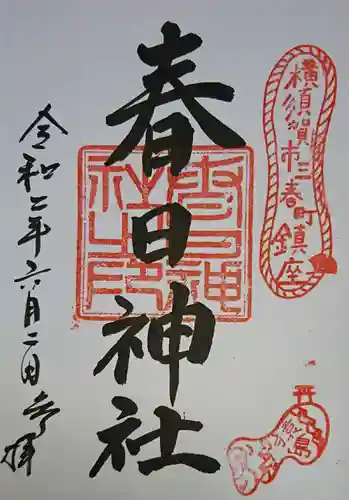 横須賀市三春町鎮座
春日神社
春日神社之印
令和二年六月二日参拝
猿島